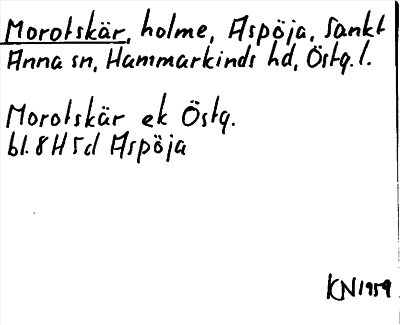 Morotskär, holme, Aspöja, Sankt
Anna sn, Hammarkinds hd, Östg. l.
Morotskär ek Östg.
bl. 8H5d Aspöja
KN1959